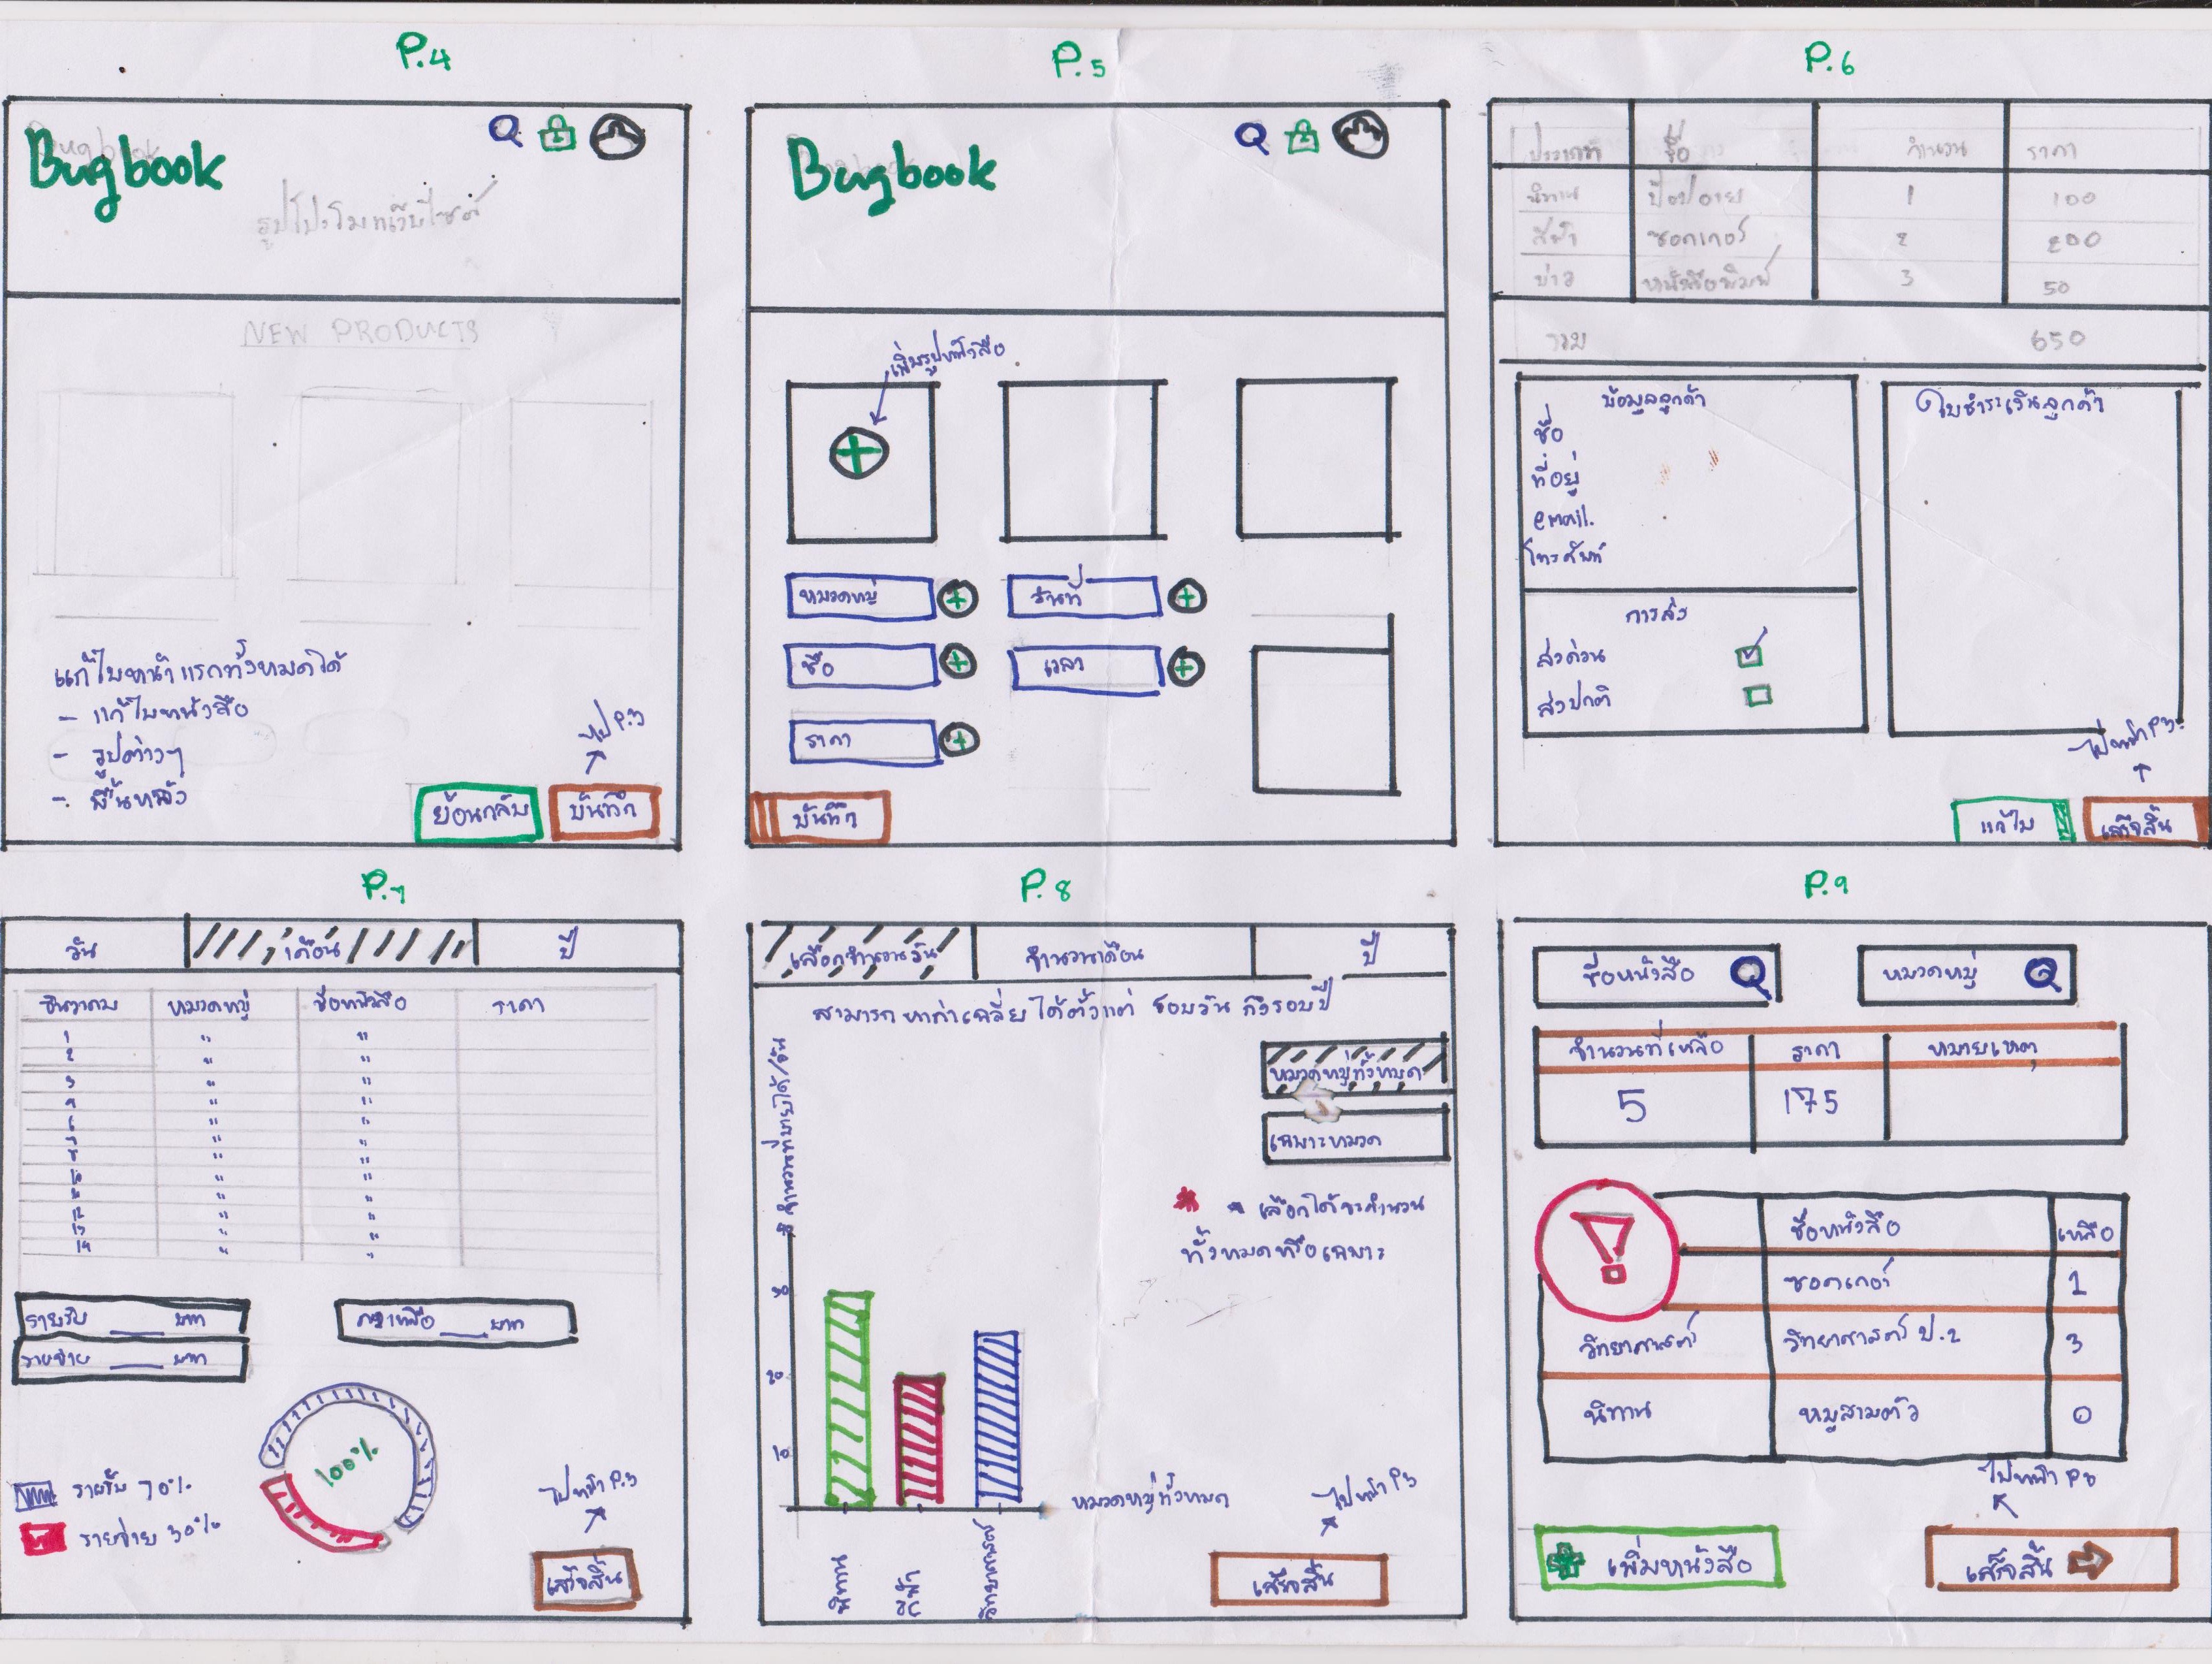 P.4
Bugbook
รูปโปรโมทเว็บไซต์
NEW PRODUCTS
แก้ไขหน้าแรกทั้งหมดได้
- แก้ไขหนังสือ
- รูปต่างๆ
- พื้นหลัง
ไป P.3
ย้อนกลับ
บันทึก
P.5
Bugbook
เพิ่มรูปหนังสือ
หมวดหมู่
วันที่
ชื่อ
เวลา
ราคา
บันทึก
P.6
ประเภท ชื่อ จำนวน ราคา
นิทาน ป๊อปอาย 1 100
กีฬา ซอคเกอร์ 2 200
ข่าว หนังสือพิมพ์ 3 50
รวม 650
ข้อมูลลูกค้า
ชื่อ
ที่อยู่
email.
โทรศัพท์
การส่ง
ส่งด่วน
ส่งปกติ
ใบชำระเงินลูกค้า
ไปหน้า P3
แก้ไข
เสร็จสิ้น
P.7
วัน เดือน ปี
ธันวาคม หมวดหมู่ ชื่อหนังสือ ราคา
1 " "
2 " "
3 " "
รายรับ ____ บาท
รายจ่าย ____ บาท
คงเหลือ ____ บาท
100%
รายรับ 70%
รายจ่าย 30%
ไปหน้า P.3
เสร็จสิ้น
P.8
เลือกจำนวนวัน จำนวนเดือน ปี
สามารถหาค่าเฉลี่ยได้ตั้งแต่ รอบวัน ถึงรอบปี
จำนวนที่ขายได้/วัน
หมวดหมู่ทั้งหมด
เฉพาะหมวด
* = เลือกได้จะคำนวน
ทั้งหมดหรือเฉพาะ
30
20
10
หมวดหมู่ทั้งหมด
นิทาน
กีฬา
วิทยาศาสตร์
ไปหน้า P3
เสร็จสิ้น
P.9
ชื่อหนังสือ
หมวดหมู่
จำนวนที่เหลือ ราคา หมายเหตุ
5 175
!
ชื่อหนังสือ เหลือ
ซอคเกอร์ 1
วิทยาศาสตร์ วิทยาศาสตร์ ป.2 3
นิทาน หมูสามตัว 0
ไปหน้า P3
เพิ่มหนังสือ
เสร็จสิ้น